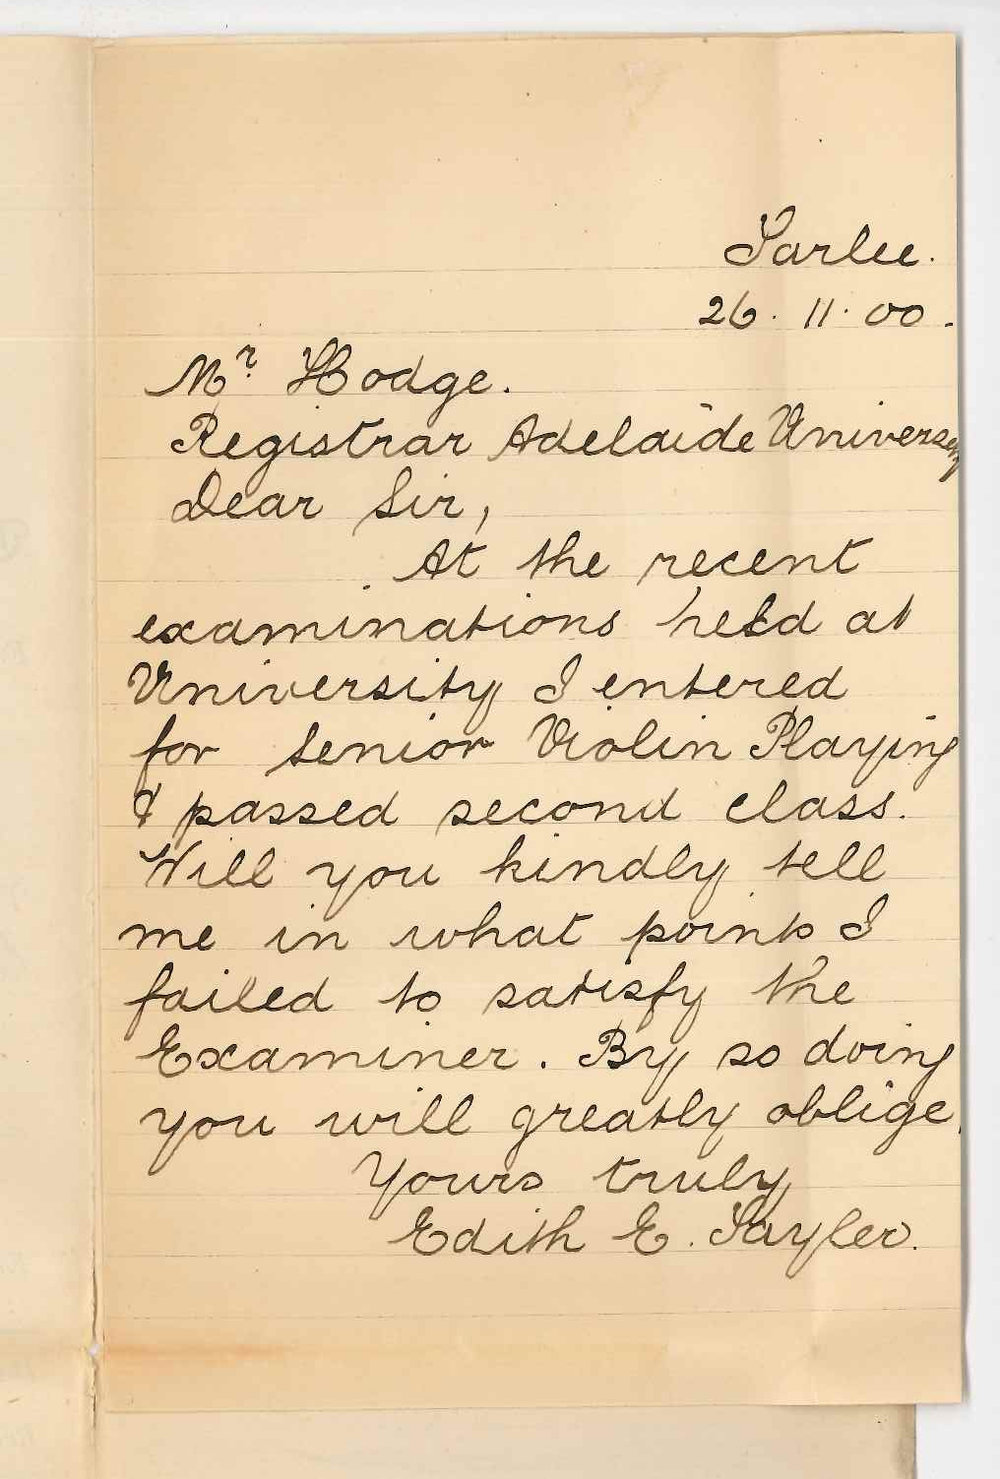 Tarlee.
26. 11. 00.
Mr. Hodge.
Registrar Adelaide University
Dear Sir,
At the recent
examinations held at
University I entered
for Senior Violin Playing
& passed second class.
Will you kindly tell
me in what points I
failed to satisfy the
Examiner. By so doing
you will greatly oblige
Yours truly
Edith E. Tayler.